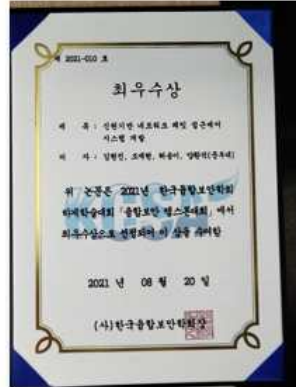 제 2021-010 호
최우수상
제 목 : 신원기반 네트워크 패킷 접근제어
시스템 개발
저 자 : 김현진, 조예현, 하종이, 양환석(중부대)
위 논문은 2021년 한국융합보안학회
하계학술대회 「융합보안 캡스톤대회」에서
최우수상으로 선정되어 이 상을 수여함
KCSA
2021 년 08 월 20 일
(사)한국융합보안학회장